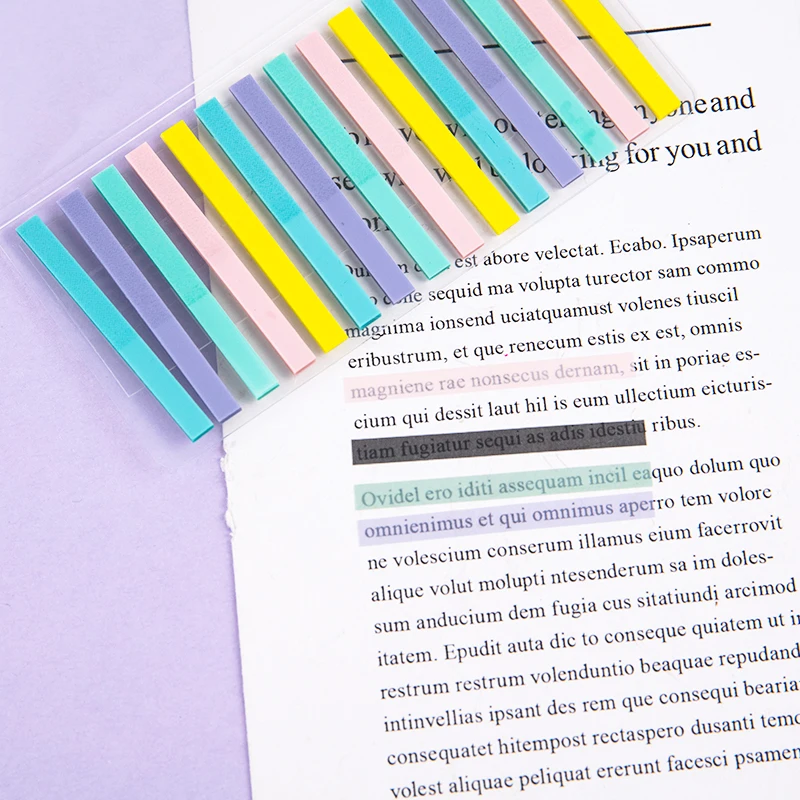 one and
for you and
est abore velectat. Ecabo. Ipsaperum
sequid ma volupta turector sam commo
magnima ionsend uciatquamust volenes tiuscil
eribustrum, et que renecum estis ex est, omnis
magniene rae nonsecus dernam, sit in poriae es-
cium qui dessit laut hil is eum ullectium eicturis-
tiam fugiatur sequi as adis idestiu ribus.
Ovidel ero iditi assequam incil eaquo dolum quo
omnienimus et qui omnimus aperro tem volore
ne volescium conserum illamus eium facerrovit
alique volut molupti ntesenderum sa im doles-
sum anducium dem fugia cus sitatiundi arcimod
itatem. Epudit auta dic to conseque quiatem ut
restrum restrum volenduntio beaquae repudand
intinvellias ipsant des rem que consequi bearia
consequatet hitempost rectaspero dusanti
volest aliquae peliquat ererunt facesci psamen